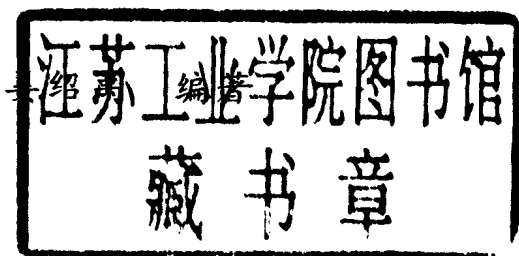 江苏工业学院图书馆
藏书章
编著